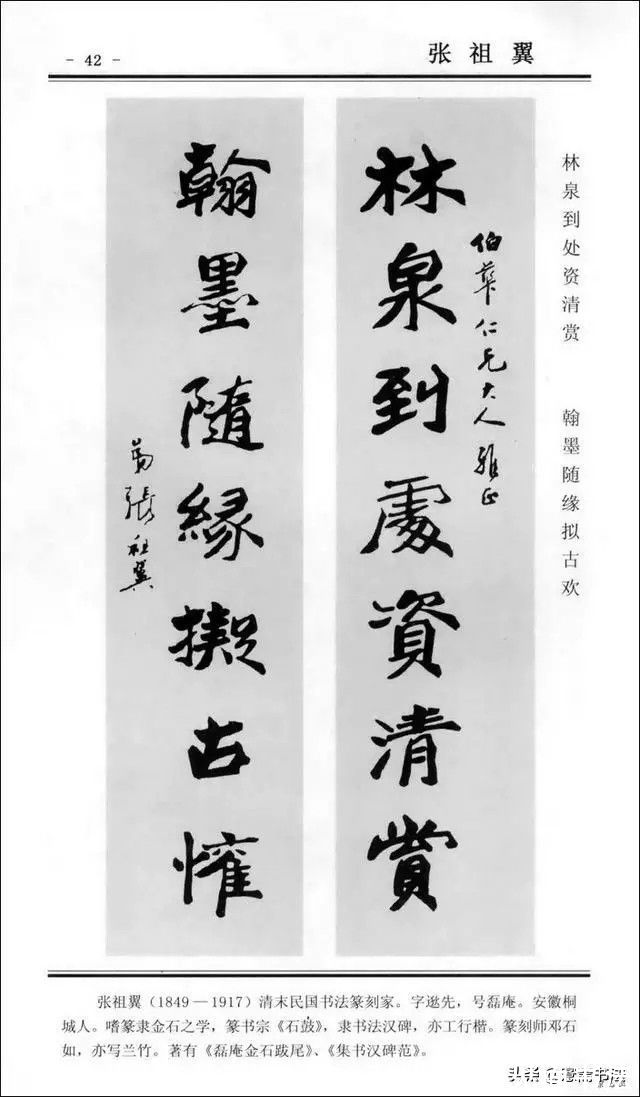 - 42 -
张祖翼
林泉到处资清赏
翰墨随缘拟古欢
林泉到處資清賞
伯華仁兄大人雅正
翰墨隨緣擬古懽
弟張祖翼
张祖翼（1849—1917）清末民国书法篆刻家。字逖先，号磊庵。安徽桐
城人。嗜篆隶金石之学，篆书宗《石鼓》，隶书法汉碑，亦工行楷。篆刻师邓石
如，亦写兰竹。著有《磊庵金石跋尾》、《集书汉碑范》。
头条